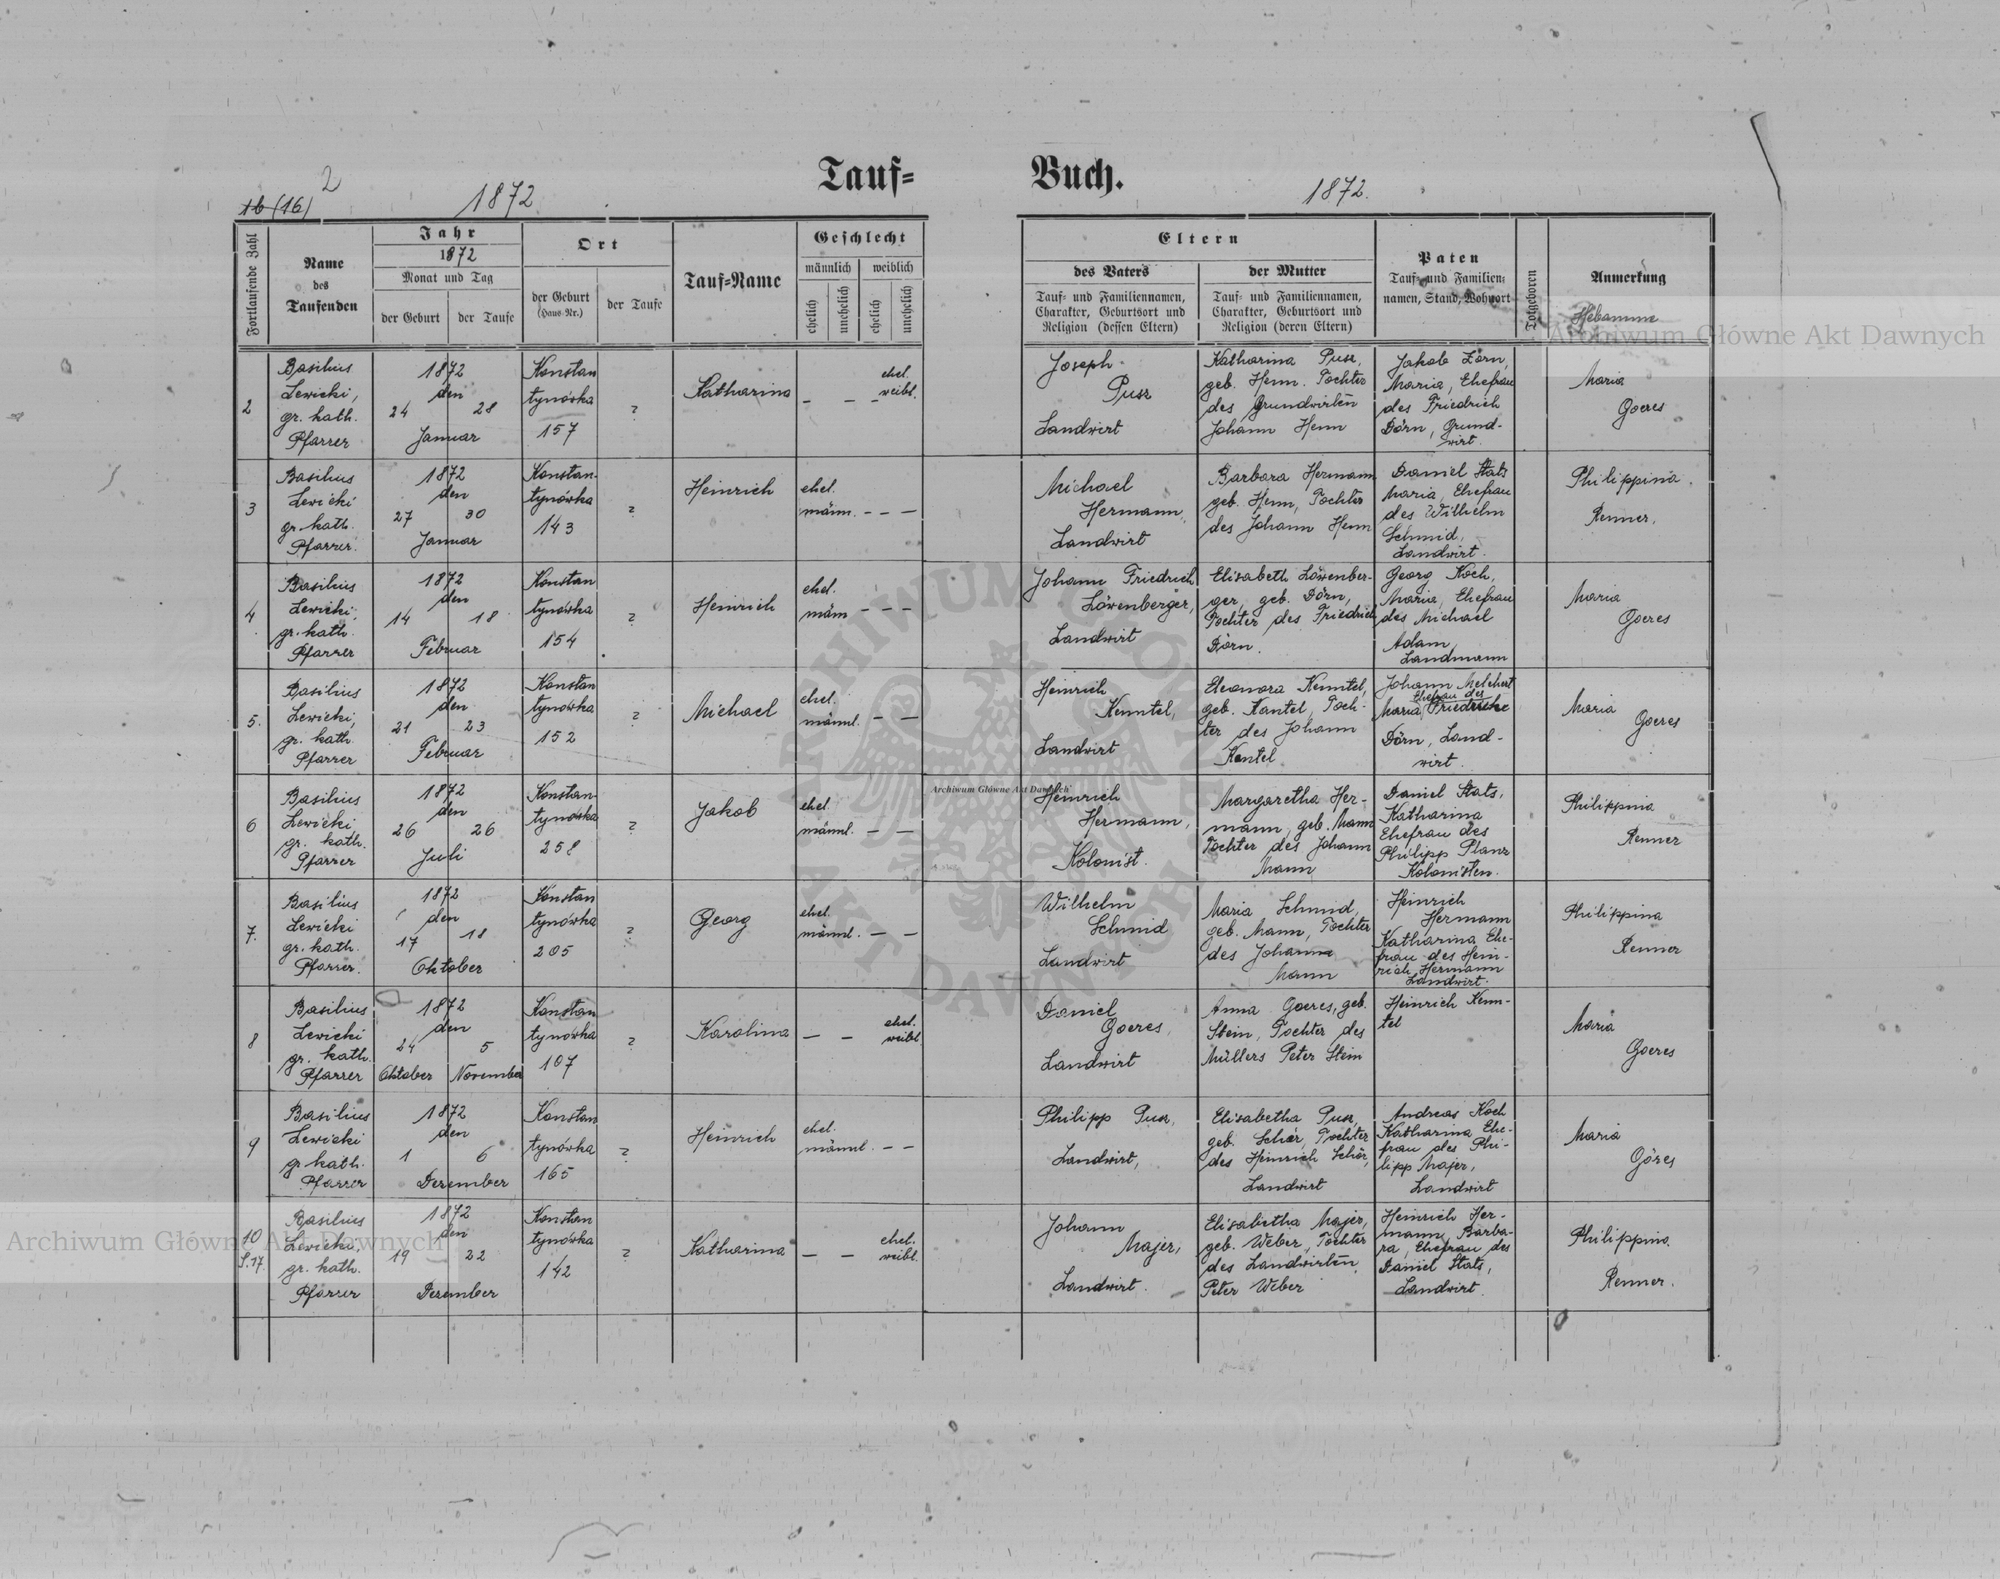 Tauf= Buch.
2
16 (16)
1872
1872.
Fortlaufende Zahl
Name
des
Taufenden
Jahr
1872
Monat und Tag
der Geburt
der Taufe
Ort
der Geburt
(Haus-Nr.)
der Taufe
Tauf=Name
Geschlecht
männlich
weiblich
ehelich
unehelich
ehelich
unehelich
Eltern
des Vaters
Tauf= und Familiennamen,
Charakter, Geburtsort und
Religion (dessen Eltern)
der Mutter
Tauf= und Familiennamen,
Charakter, Geburtsort und
Religion (deren Eltern)
Paten
Tauf= und Familien=
namen, Stand, Wohnort
Totgeboren
Anmerkung
Hebamme
2
Basilius
Lewicki,
gr. kath.
Pfarrer
1872
den
24 28
Januar
Konstan
tynówka
157
?
Katharina
– – –
ehel.
weibl.
Joseph
Pusz
Landwirt
Katharina Pusz,
geb. Henn. Tochter
des Grundwirten
Johann Henn
Jakob Dörn,
Maria, Ehefrau
des Friedrich
Dörn, Grund-
wirt.
Maria
Goeres
3
Basilius
Lewicki
gr. kath.
Pfarrer.
1872
den
27 30
Januar
Konstan-
tynówka
143
?
Heinrich
ehel.
männ. – – –
Michael
Hermann,
Landwirt
Barbara Hermann
geb. Henn, Tochter
des Johann Henn
Daniel Stats
Maria, Ehefrau
des Wilhelm
Schmid,
Landwirt.
Philippina.
Renner.
4
Basilius
Lewicki;
gr. kath.
Pfarrer
1872
den
14 18
Februar
Konstan
tynówka
154
?
Heinrich
ehel.
männ – – –
Johann Friedrich
Löwenberger,
Landwirt
Elisabeth Löwenber-
ger, geb. Dörn,
Tochter des Friedrich
Dörn.
Georg Koch,
Maria, Ehefrau
des Michael
Adam,
Landmann
Maria
Goeres
5.
Basilius
Lewicki,
gr. kath.
Pfarrer
1872
den
21 23
Februar
Konstan
tynówka
152
?
Michael
ehel.
männl. – –
Heinrich
Kenntel,
Landwirt
Eleonora Kenntel,
geb. Kantel, Toch-
ter des Johann
Kantel
Johann Melchert
Ehefrau des
Maria, Friedriche
Dörn, Land-
wirt.
Maria
Goeres
6
Basilius
Lewicki
gr. kath.
Pfarrer
1872
den
26 26
Juli
Konstan-
tynówka
258
?
Jakob
ehel.
männl. – –
Heinrich
Hermann,
Kolonist.
Margaretha Her-
mann, geb. Mann
Tochter des Johann
Mann
Daniel Stats,
Katharina
Ehefrau des
Philipp Planz
Kolonisten.
Philippina
Renner
7.
Basilius
Lewicki
gr. kath.
Pfarrer.
1872
den
17 18
Oktober
Konstan
tynówka
205
?
Georg
ehel.
männl. – –
Wilhelm
Schmid
Landwirt
Maria Schmid,
geb. Mann, Tochter
des Johann
Mann
Heinrich
Hermann
Katharina Ehe-
frau des Hein-
rich Hermann
Landwirt.
Philippina
Renner
8
Basilius
Lewicki
gr. kath.
Pfarrer
1872
den
24 5
Oktober November
Konstan
tynówka
107
?
Karolina
– –
ehel.
weibl
Daniel
Goeres,
Landwirt
Anna Goeres, geb.
Stein, Tochter des
Müllers Peter Stein
Heinrich Kenn-
tel
Maria
Goeres
9
Basilius
Lewicki
gr. kath.
Pfarrer
1872
den
1 6
Dezember
Konstan
tynówka
165
?
Heinrich
ehel.
männl. – –
Philipp Pusz,
Landwirt,
Elisabetha Pusz,
geb. Schär, Tochter
des Heinrich Schär,
Landwirt
Andreas Koch
Katharina Ehe-
frau des Phi-
lipp Majer,
Landwirt
Maria
Göres
10
S.17.
Basilius
Lewicki,
gr. kath.
Pfarrer
1872
den
19 22
Dezember
Konstan
tynówka
142
?
Katharina
– –
ehel.
weibl.
Johann
Majer,
Landwirt.
Elisabetha Majer,
geb. Weber, Tochter
des Landwirten
Peter Weber
Heinrich Her-
mann, Barba-
ra, Ehefrau des
Daniel Stats,
Landwirt.
Philippina
Renner.
Archiwum Główne Akt Dawnych
Archiwum Główne Akt Dawnych
Archiwum Główne Akt Dawnych
ARCHIWUM GŁÓWNE AKT DAWNYCH